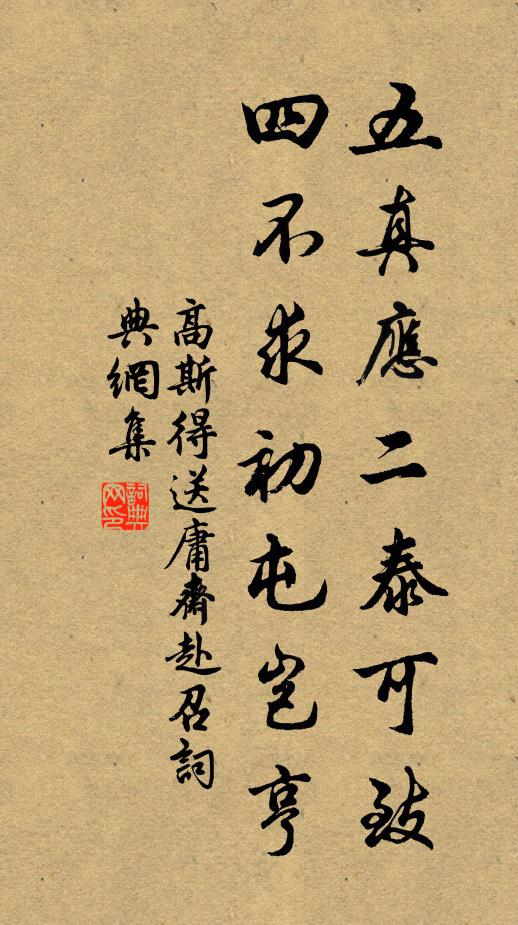 五真應二泰可致
四不求初屯豈亨
高斯得送庸齋赴召詞
典網集
詞典网印